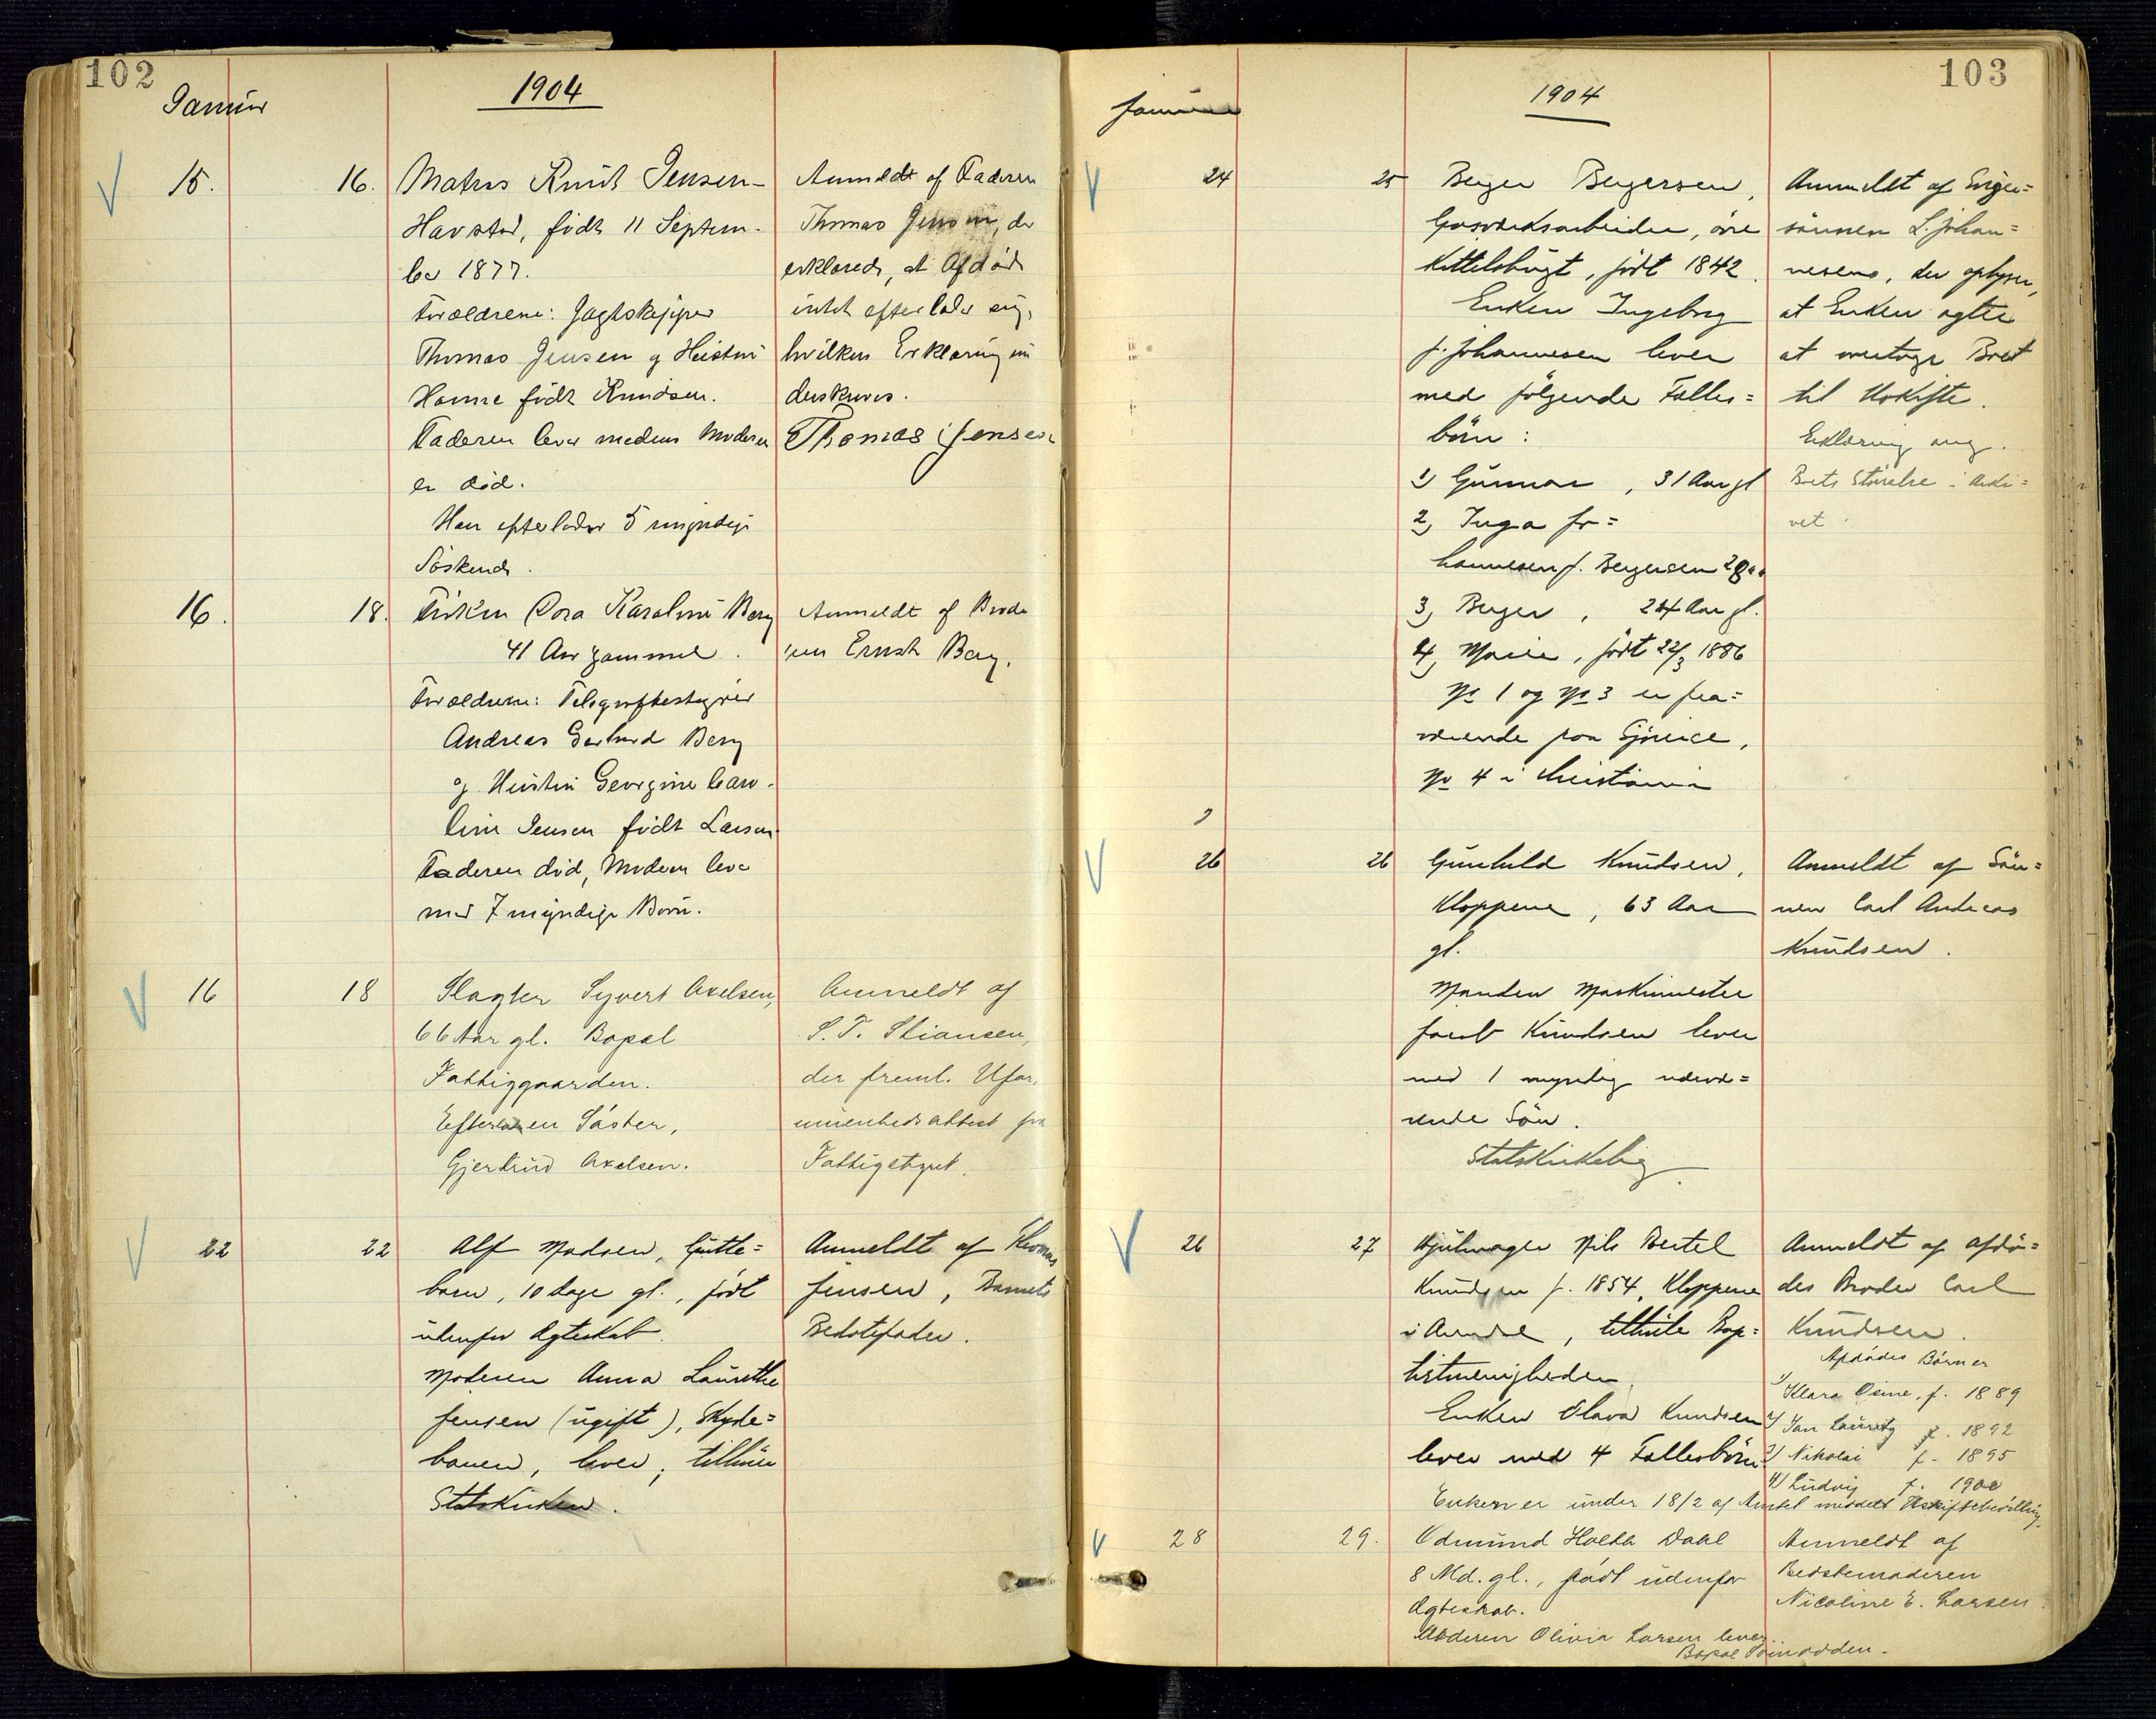 102
Januar
1904
15.
16.
Matros Knut Jensen
Havstad, født 11 Septem-
ber 1877.
Forældrene: Jagtskipper
Thomas Jensen og Hustru
Hanne født Knudsen.
Faderen lever medens Moderen
er død.
Han efterlader 5 myndige
Søskende.
Anmeldt af Faderen
Thomas Jensen, der
erklærede, at Afdøde
intet efterlader sig,
hvilken Erklæring un
derskrives.
Thomas Jensen
16.
18.
Frøken Cora Karoline Berg
41 Aar gammel.
Forældrene: Telegrafbestyrer
Andreas Gerhard Berg
og Hustru Georgine Caro-
line Jensen født Larsen.
Faderen død, Moderen lever
med 7 myndige Børn.
Anmeldt af Brode
ren Ernst Berg.
16
18
Slagter Syvert Axelsen,
66 Aar gl. Bopæl
Fattiggaarden.
Efterlader en Søster,
Gjertrud Axelsen.
Anmeldt af
S. T. Stiansen,
der freml. Ufor-
muenhedsattest fra
Fattigstyret.
22
22
Alf Madsen, Gutte=
barn, 10 dage gl., født
udenfor Ægteskab.
Moderen Anna Laurethe
Jensen (ugift), Skyde=
banen, lever, tilhører
Statskirken.
Anmeldt af Thomas
Jensen, Barnets
Bedstefader.
103
Januar
1904
24
25
Berger Bergersen,
Gasværksarbeider, øvre
Kittelsbugt, født 1842.
Enken Ingeborg
f. Johannesen lever
med følgende Fælles=
børn:
1) Gunnar, 31 Aar gl
2) Inga Jo=
hannesen f. Bergersen 28 aar
3) Berger, 24 Aar gl.
4) Marie, født 22/3 1886
No 1 og No 3 er fra=
værende paa Sjøreise,
No 4 i Christiania
Anmeldt af Sviger=
sønnen L. Johan=
nesens, der oplyser,
at Enken agter
at overtage Boet
til Uskifte.
Erklæring ang.
Boets Størrelse i Arki=
vet.
26
26
Gunhild Knudsen,
Kloppene, 63 Aar
gl.
Manden Maskinmester
Jacob Knudsen lever
med 1 myndig nærvæ=
rende Søn.
Statskirkelig
Anmeldt af Søn=
nen Carl Andreas
Knudsen.
26
27
Hjulmager Nils Bertel
Knudsen f. 1854, Kloppene
i Arendal, tilhørte Bap=
tistmenigheden.
Enken Olava Knudsen
lever med 4 Fællesbørn
Anmeldt af afdø=
des Broder Carl
Knudsen.
Afdødes Børn er
1) Klara Osine, f. 1889
2) Jan Lauritz f. 1892
3) Nikolai f. 1895
4) Ludvig f. 1900
Enken er under 18/2 af Amtet meddelt Uskiftebevilling.
28
29.
Odmund Holth Dahl
8 Md. gl., født udenfor
Ægteskab.
Moderen Olivia Larsen lever.
Anmeldt af
Bedstemoderen
Nicoline E. Larsen